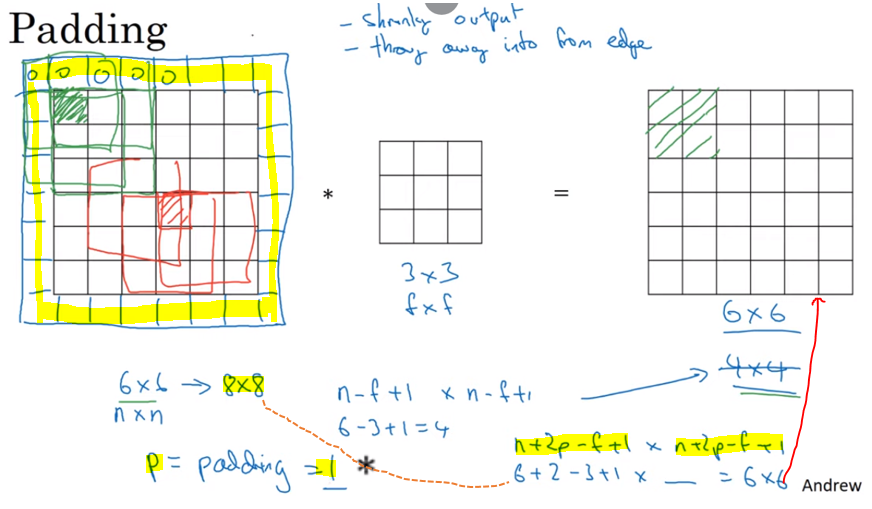 Padding
- shrinky output
- throw away info from edge
0 0 0 0 0
*
=
3×3
f×f
6×6
4×4
6×6 → 8×8
n×n
n-f+1 × n-f+1
6-3+1=4
p = padding = 1 *
n+2p-f+1 × n+2p-f+1
6+2-3+1 × __ = 6×6
Andrew